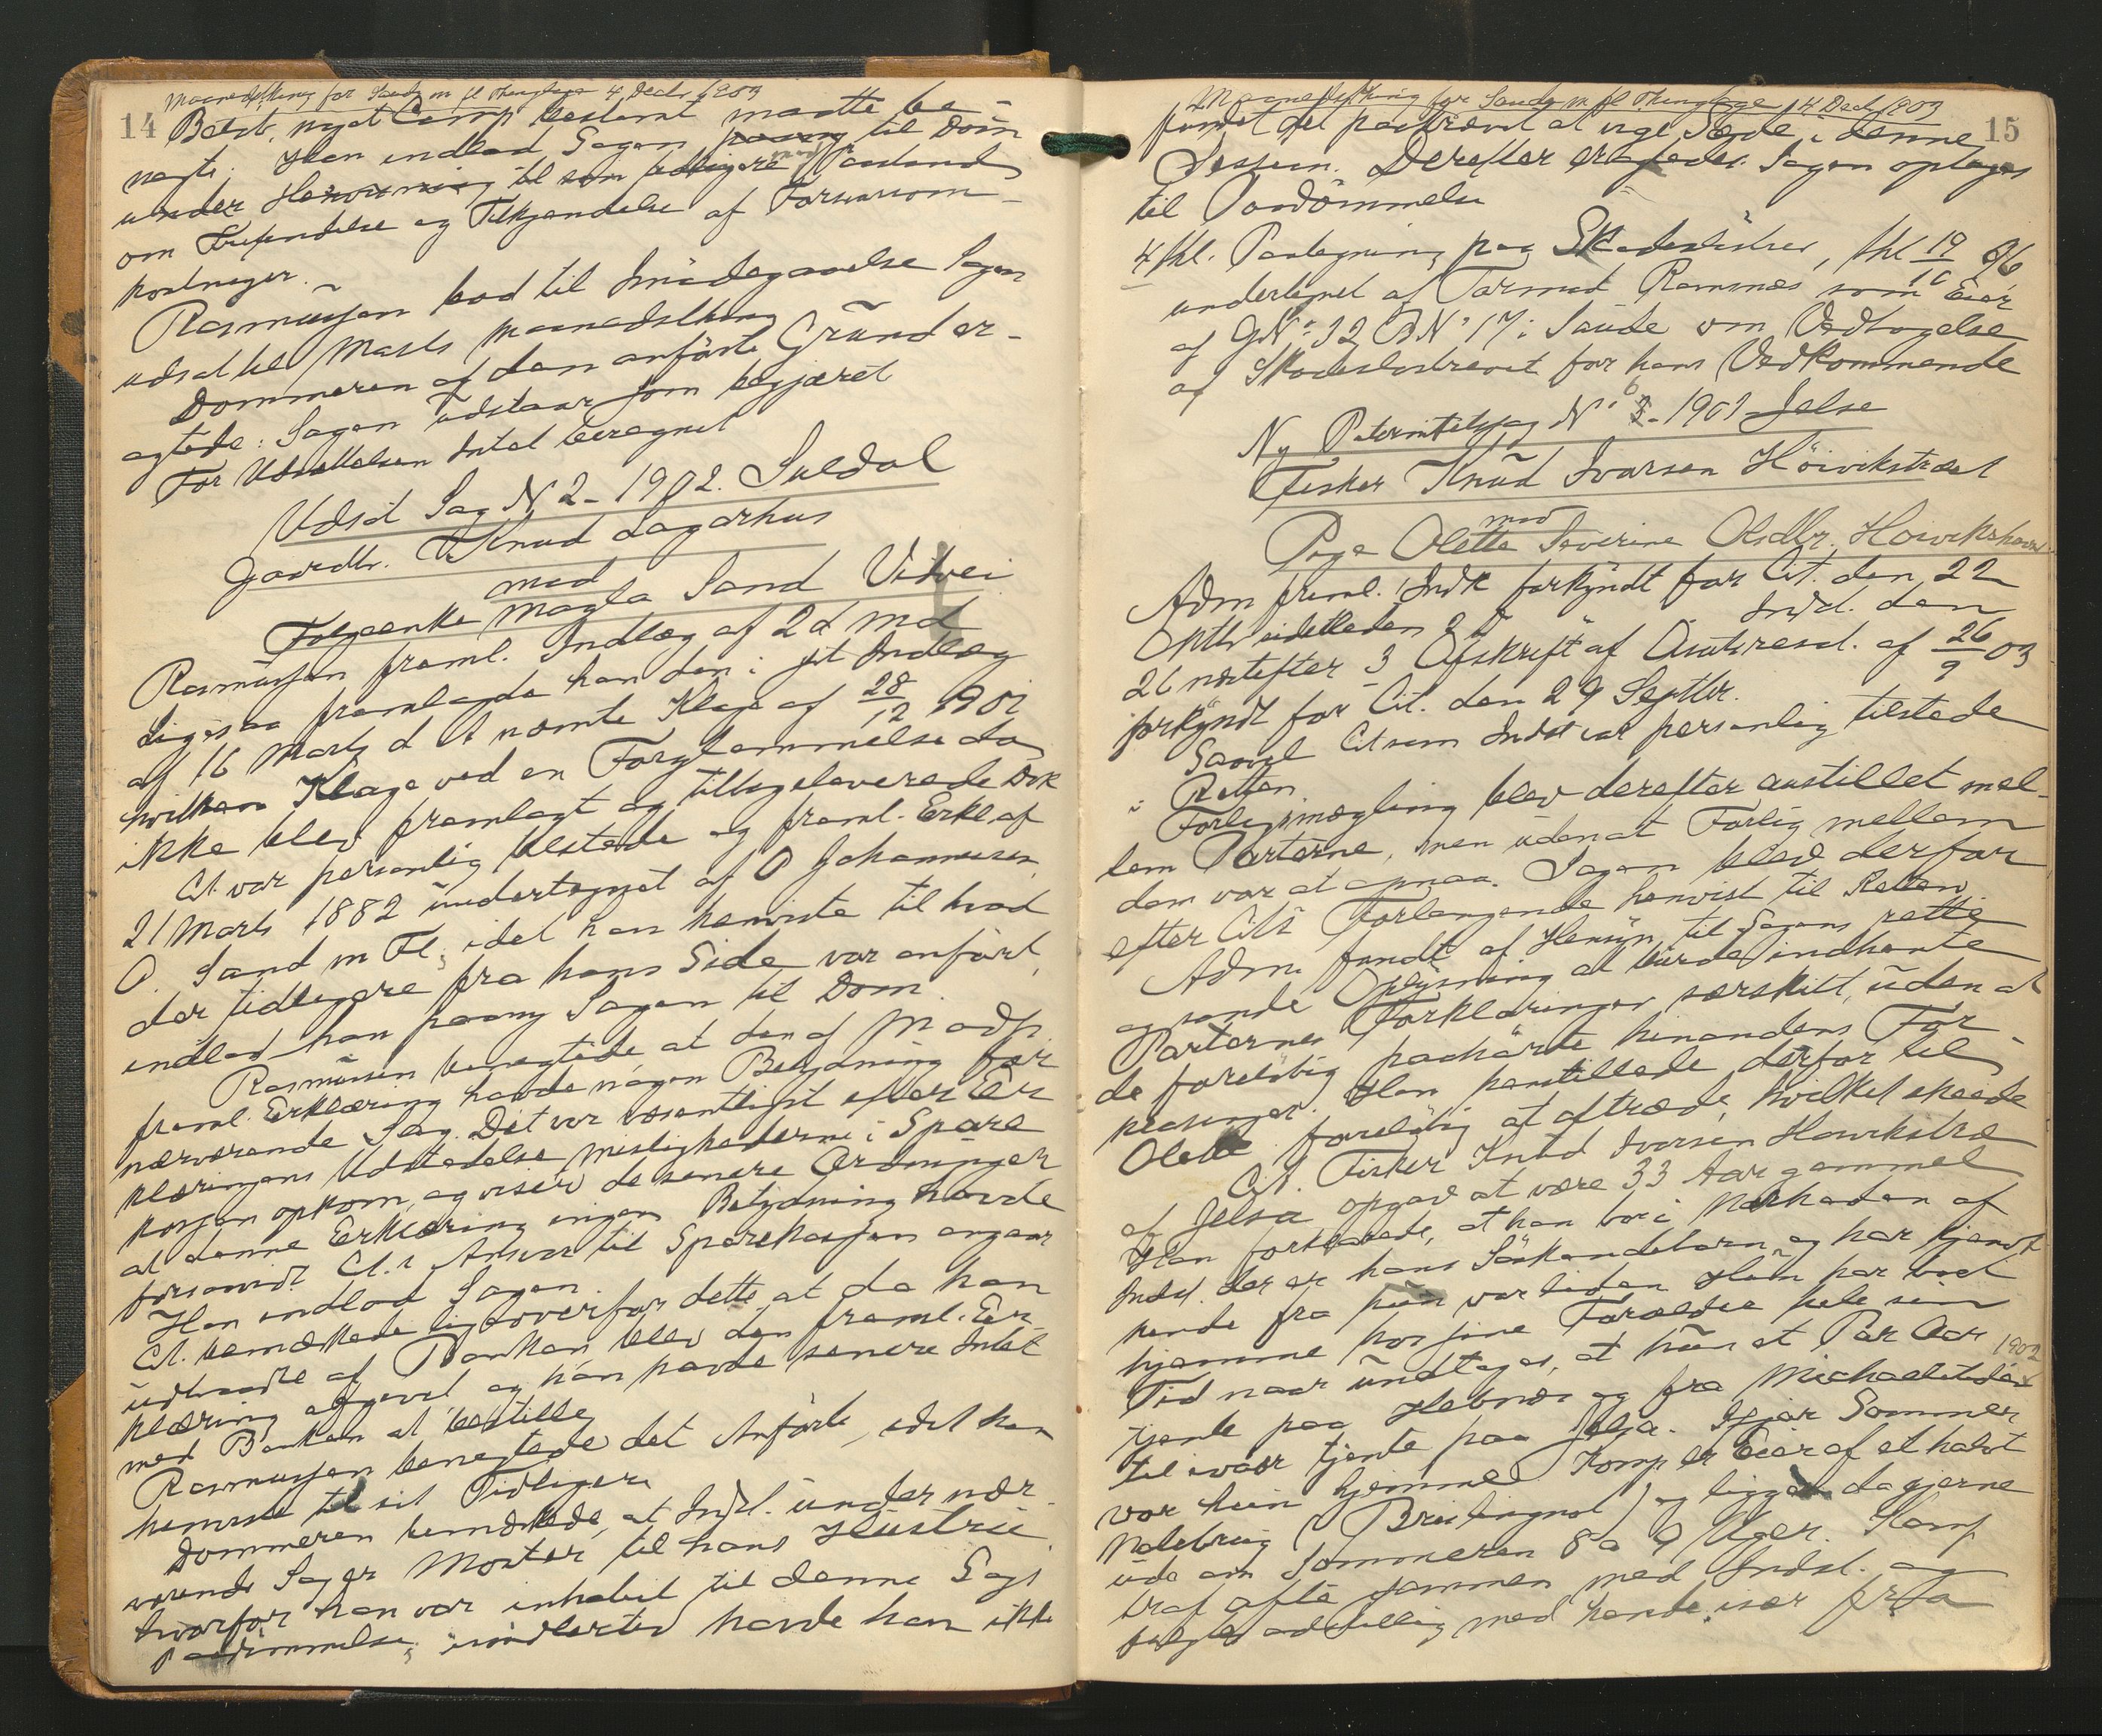 Maanedsthing for Saude m fl Thinglage 4 Decbr 1903
14
Bests. noget Camp bestemt maatte be-
negte. Han indlod Sagen til Dom
under Henvisning til som tidligere Paastand
om Frifindelse og Tilkjendelse af Forsvarsom-
kostninger.
Rasmussen bad til Imødegaaelse Sagen
udsat til Marts maanedsthing
Dommeren af den anførte Grund er-
agtede: Sagen udstaar som begjæret
For Udsættelsen Intet beregnet
Udsat Sag N 2 - 1902. Suldal
Gaardbr. Knud Lagarhus
mod
Magla Sand Vidvei
Rasmussen freml. Indlæg af 2d md
Ligesaa fremlagde han den i sit Indlæg
af 16 Marts d A nævnte Klage af 28/12 1901
hvilken Klage ved en Forglemmelse da
ikke blev fremlagt og tilbageleverede Dok
Ct. var personlig tilstede og freml. Erkl af
21 Marts 1882 undertegnet af O Johannesen
O. Sand m Fl; idet han henviste til hvad
der tidligere fra hans Side var anført,
indlod han paany Sagen til Dom.
Rasmussen benegtede, at den af Modp.
freml. Erklæring havde nogen Betydning for
nærværende Sag. Det var væsentligst efter Er-
klæringens Udstedelse Mislighederne i Spare
kassen opkom, og viser de senere Ordninger
at denne Erklæring ingen Betydning havde
forsaavidt Ct.s Ansvar til Sparekassen angaar
Han indlod Sagen.
Ct. bemærkede ligeoverfor dette at da han
udtraadte af Banken blev den freml. Er-
klæring afgivet og han havde senere Intet
med Banken at bestille
Rasmussen benegtede det Anførte, idet han
henviste til sit Tidligere
Dommeren bemærkede, at Indst. under nær-
værende Sag er Moster til hans Hustru
hvorfor han var inhabil til denne Sags
Paadømmelse; imidlertid havde han ikke
Maanedsthing for Saude m fl Thinglage 4 Decb 1903
15
fundet det paakrævet at vige Sæde i denne
Session. Derefter eragtedes Sagen optages
til Paadømmelse
4 fhl. Paategning paa Skadesløsbrev, thl 19/10 96
undertegnet af Tormod Ramnæs som Eier
af GN: 32 BN 17 i Saude om Vedtagelse
af Skadesløsbrevet for hans Vedkommende
Ny Paternitetssag N 6 - 1901 Jelse
Fisker Knud Ivarsen Höivikstræet
mod
Pige Olette Severine Olsdtr. Hovikshavn
Adm freml. 1 Indk forkyndt for Cit. den 22
Oktbr sidstleden 2 Indst. den
26 næstefter 3 Afskrift af Amtsresol. af 26/9 03
forkyndt for Cit. den 29 Septbr.
Saavel Cit som Indst var personlig tilstede
i Retten.
Forligsmægling blev derefter anstillet mel-
lem Parterne, men uden at Forlig mellem
dem var at opnaa. Sagen blev derfor
efter Cits Forlangende henvist til Retten
Adm. fandt af Hensyn til Sagens rette
og sande Oplysning at burde indhente
Parternes Forklaringer særskilt, uden at
de foreløbig paahørte hinandens For-
klaringer. Han henstillede derfor til
Olette foreløbig at aftræde, hvilket skeede
Cit. Fisker Knud Ivarsen Hovikstræ
af Jelsa opgav at være 33 Aar gammel
Han forklarede, at han bor i Nærheden af
Indst. der er hans Söskendebarn og har kjendt
hende fra hun var liden Hun har været
hjemme hos sine Forældre hele sin
Tid naar undtages, at hun et Par Aar
tjente paa Hebnæs og fra Michaelistider 1902
til ivaar tjente paa Jelsa. Ifjor Sommer
var hun hjemme Komp er Eier af et halvt
Notebrug (Brislingnot) og ligger da gjerne
ude om Sommeren 8 a 9 Uger. Komp
traf ofte sammen med Indst. og
fulgte adskillig med hende, især fra